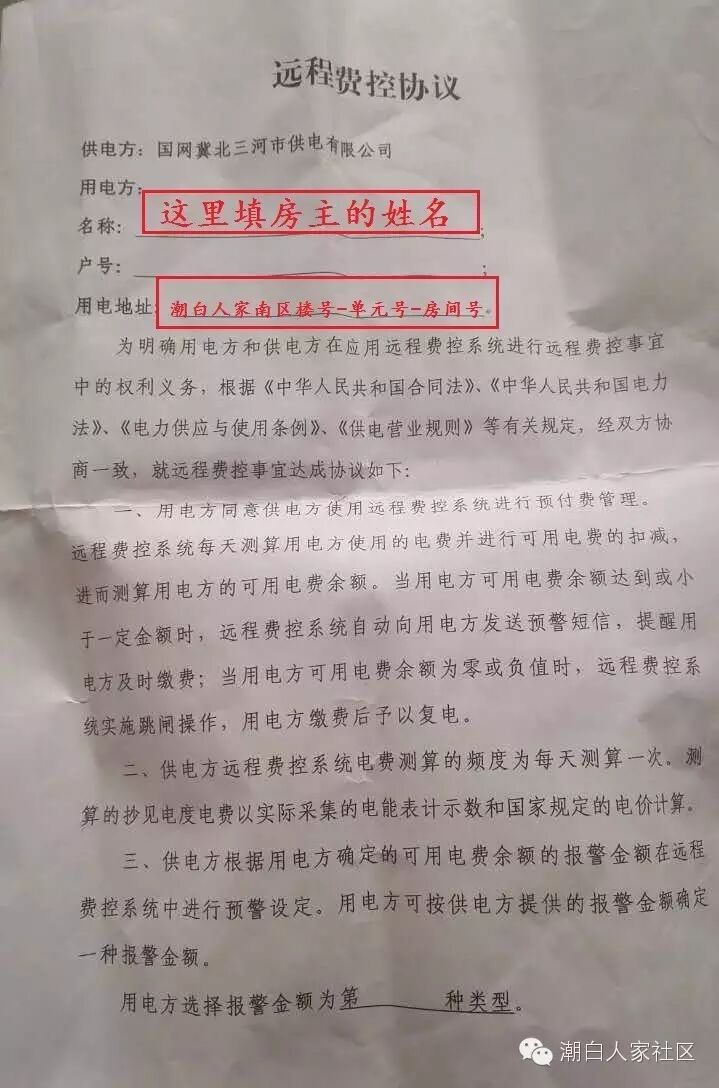 远程费控协议
供电方：国网冀北三河市供电有限公司
用电方：
名称：这里填房主的姓名；
户号：；
用电地址：潮白人家南区楼号-单元号-房间号。
为明确用电方和供电方在应用远程费控系统进行远程费控事宜
中的权利义务，根据《中华人民共和国合同法》、《中华人民共和国电力
法》、《电力供应与使用条例》、《供电营业规则》等有关规定，经双方协
商一致，就远程费控事宜达成协议如下：
一、用电方同意供电方使用远程费控系统进行预付费管理。
远程费控系统每天测算用电方使用的电费并进行可用电费的扣减，
进而测算用电方的可用电费余额。当用电方可用电费余额达到或小
于一定金额时，远程费控系统自动向用电方发送预警短信，提醒用
电方及时缴费；当用电方可用电费余额为零或负值时，远程费控系
统实施跳闸操作，用电方缴费后予以复电。
二、供电方远程费控系统电费测算的频度为每天测算一次。测
算的抄见电度电费以实际采集的电能表计示数和国家规定的电价计算。
三、供电方根据用电方确定的可用电费余额的报警金额在远程
费控系统中进行预警设定。用电方可按供电方提供的报警金额确定
一种报警金额。
用电方选择报警金额为第 种类型。
潮白人家社区